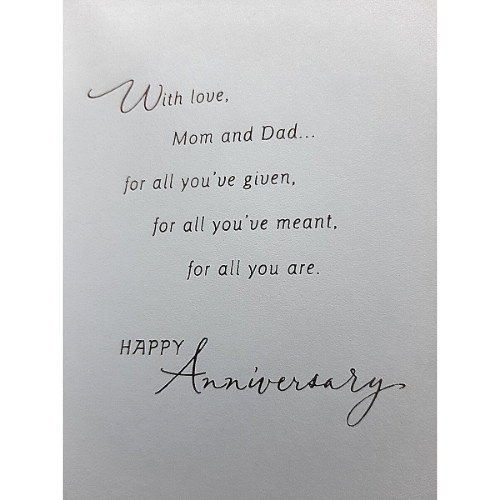 With love,
Mom and Dad...
for all you've given,
for all you've meant,
for all you are.
HAPPY
Anniversary